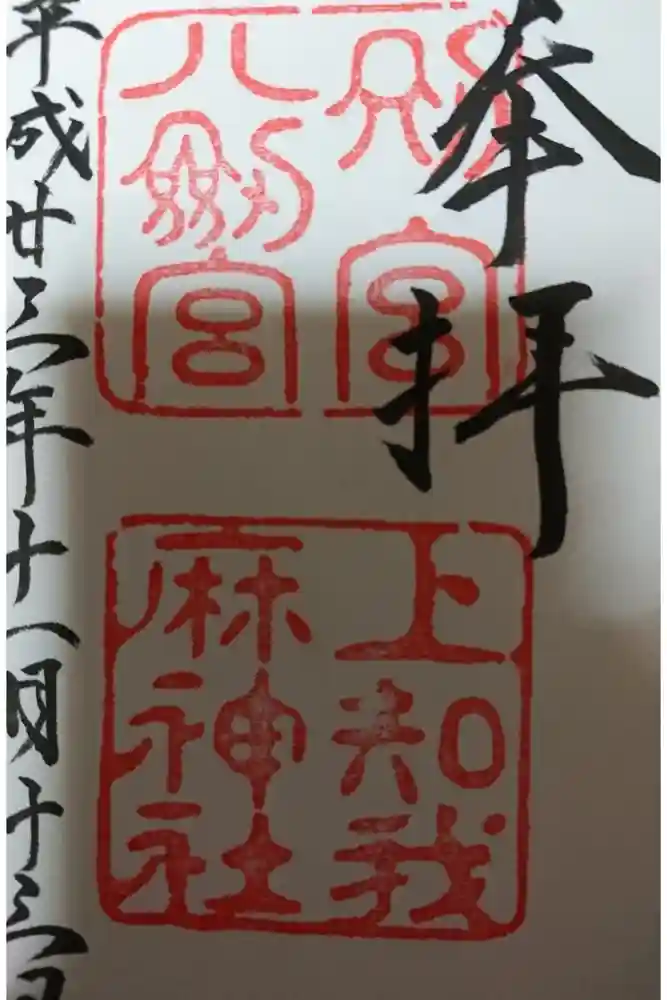 奉拝
別宮
八剣宮
上知我
麻神社
平成廿三年十一月十三日